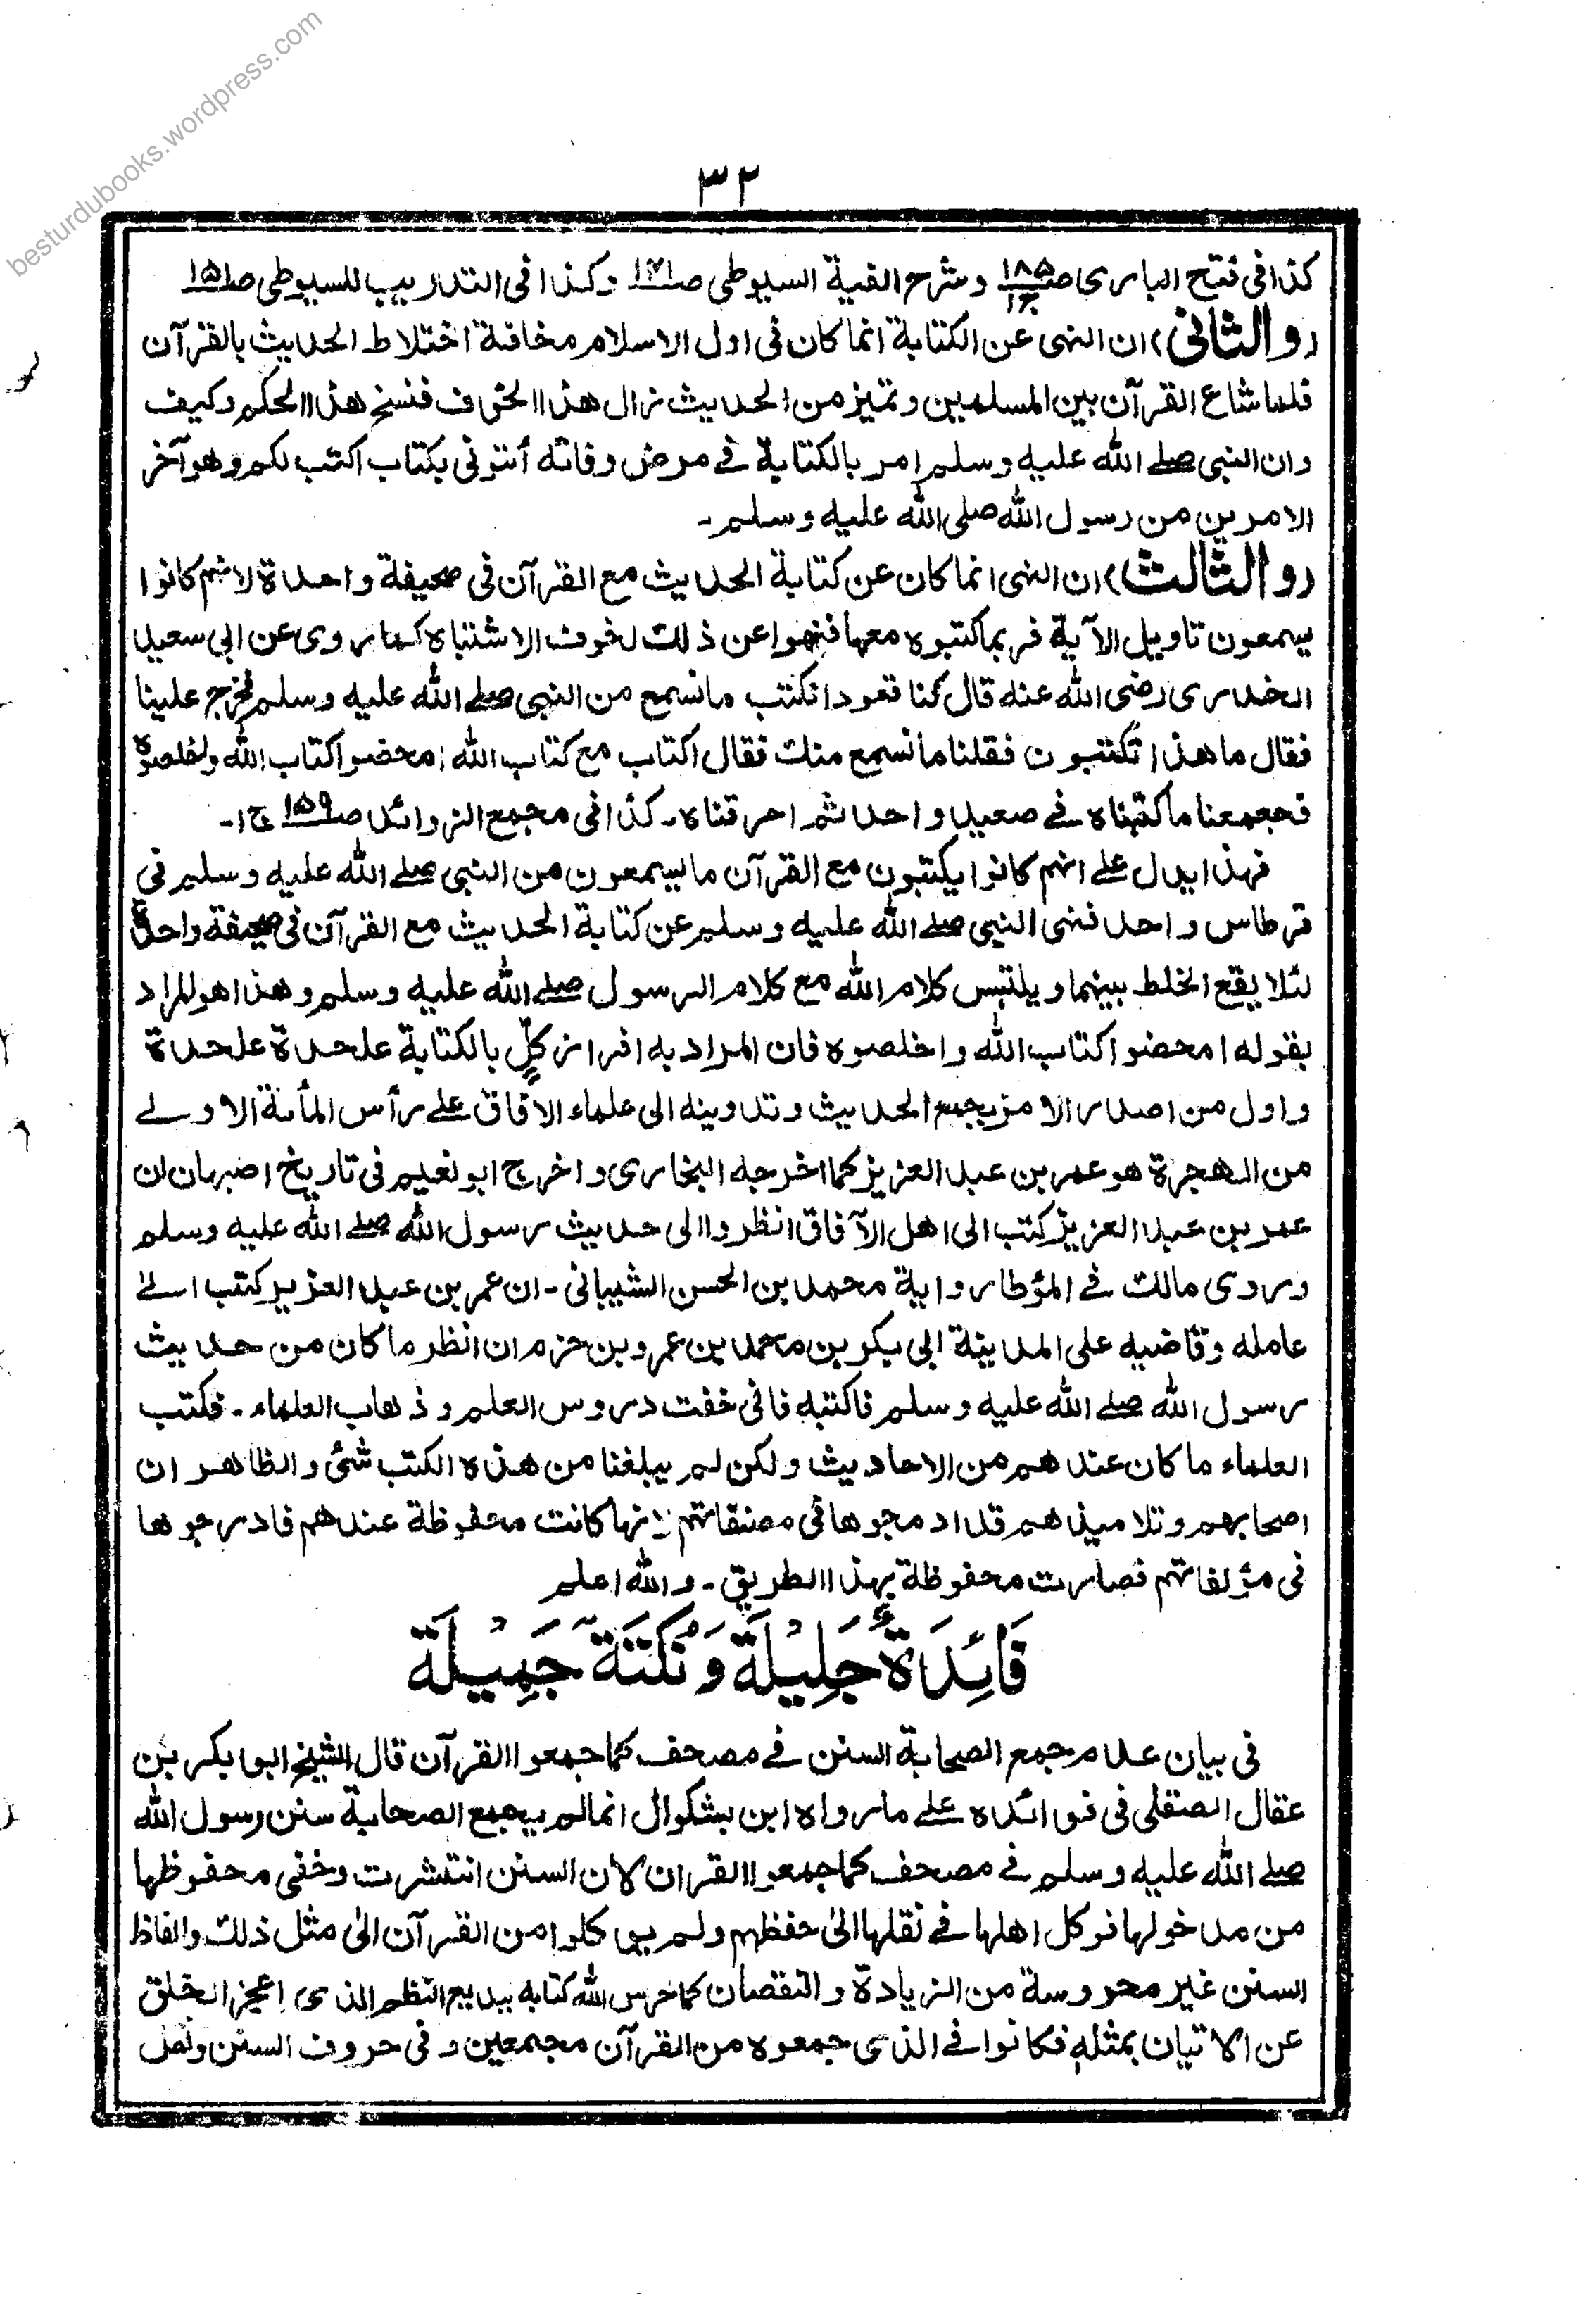 besturdubooks.wordpress.com
٣٢
كذا فى فتح البارى ص١٨٥ ج١ وشرح الفية السيوطى ص١٢١ وكذا فى التدريب للسيوطى ص١٥١
(والثانى) ان النهى عن الكتابة انما كان فى اول الاسلام مخافة اختلاط الحديث بالقرآن
فلما شاع القرآن بين المسلمين وتميز من الحديث زال هذا الخوف فنسخ هذا الحكم وكيف
وان النبى صلى الله عليه وسلم امر بالكتابة فى مرض وفاته أئتونى بكتاب اكتب لكم وهو آخر
الامرين من رسول الله صلى الله عليه وسلم۔
(والثالث) ان النهى انما كان عن كتابة الحديث مع القرآن فى صحيفة واحدة لانهم كانوا
يسمعون تاويل الآية فربما كتبوه معها فنهوا عن ذلك لخوف الاشتباه كما روى عن ابى سعيد
الخدرى رضى الله عنه قال كنا قعودا نكتب ما نسمع من النبى صلى الله عليه وسلم فخرج علينا
فقال ما هذا تكتبون فقلنا ما نسمع منك فقال اكتاب مع كتاب الله امحضوا كتاب الله واخلصوه
فجعمعنا ما كتبناه فى صعيد واحد ثم احرقناه۔ كذا فى مجمع الزوائد ص١٥٩ ج١۔
فهذا يدل على انهم كانوا يكتبون مع القرآن ما يسمعون من النبى صلى الله عليه وسلم فى
قرطاس واحد فنهى النبى صلى الله عليه وسلم عن كتابة الحديث مع القرآن فى صحيفة واحدة
لئلا يقع الخلط بينهما ويلتبس كلام الله مع كلام الرسول صلى الله عليه وسلم وهذا هو المراد
بقوله امحضوا كتاب الله واخلصوه فان المراد به افراز كلٍّ بالكتابة علحدة علحدة
واول من اصدر الامر بجمع الحديث وتدوينه الى علماء الافاق على رأس المأئة الاولى
من الهجرة هو عمر بن عبد العزيز كما اخرجه البخارى واخرج ابو نعيم فى تاريخ اصبهان ان
عمر بن عبد العزيز كتب الى اهل الآفاق انظروا الى حديث رسول الله صلى الله عليه وسلم
وروى مالك فى المؤطا رواية محمد بن الحسن الشيبانى۔ ان عمر بن عبد العزيز كتب الى
عامله وقاضيه على المدينة ابى بكر بن محمد بن عمرو بن حزم ان انظر ما كان من حديث
رسول الله صلى الله عليه وسلم فاكتبه فانى خفت دروس العلم وذهاب العلماء۔ فكتب
العلماء ما كان عندهم من الاحاديث ولكن لم يبلغنا من هذه الكتب شئ والظاهر ان
اصحابهم وتلاميذهم قد ادمجوها فى مصنفاتهم لانها كانت محفوظة عندهم فادرجوها
فى مؤلفاتهم فصارت محفوظة بهذا الطريق۔ والله اعلم
فَائِدَةٌ جَلِيْلَةٌ وَنُكْتَةٌ جَمِيْلَةٌ
فى بيان عدم جمع الصحابة السنن فى مصحف كما جمعوا القرآن قال الشيخ ابو بكر بن
عقال الصقلى فى فوائده على ما رواه ابن بشكوال انما لم يجمع الصحابة سنن رسول الله
صلى الله عليه وسلم فى مصحف كما جمعوا القران لان السنن انتشرت وخفى محفوظها
من مدخولها فوكل اهلها فى نقلها الى حفظهم ولم يوكلوا من القرآن الى مثل ذلك والفاظ
السنن غير محروسة من الزيادة والنقصان كما حرس الله كتابه ببديع النظم الذى اعجز الخلق
عن الاتيان بمثله فكانوا فى الذى جمعوه من القرآن مجمعين وفى حروف السنن ونقل